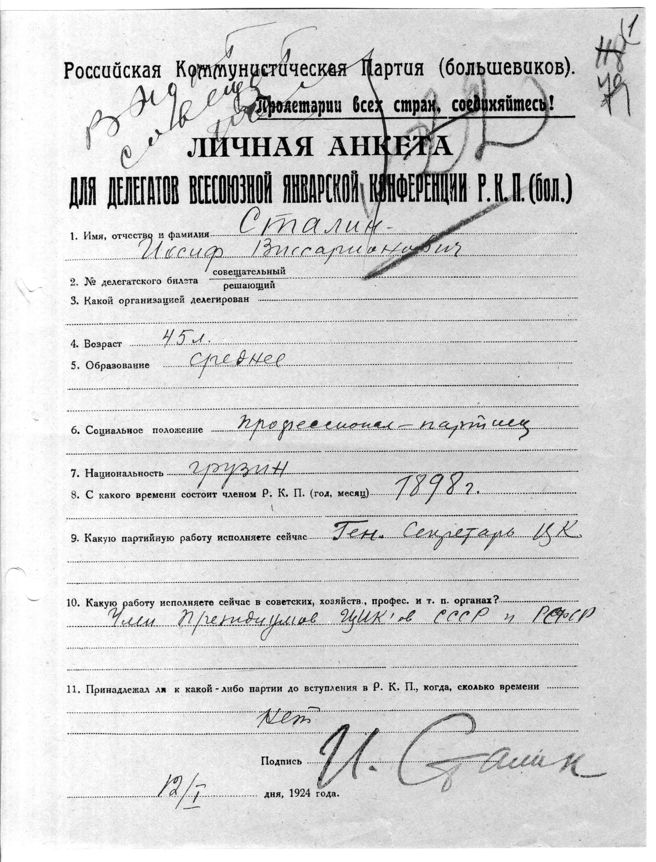 Российская Коммунистическая Партия (большевиков).
Пролетарии всех стран, соединяйтесь!
ЛИЧНАЯ АНКЕТА
ДЛЯ ДЕЛЕГАТОВ ВСЕСОЮЗНОЙ ЯНВАРСКОЙ КОНФЕРЕНЦИИ Р. К. П. (бол.)
1. Имя, отчество и фамилия Сталин-
Иосиф Виссарионович
2. № делегатского билета совещательный
решающий
3. Какой организацией делегирован
4. Возраст 45 л.
5. Образование среднее
6. Социальное положение профессионал-партиец
7. Национальность грузин
8. С какого времени состоит членом Р. К. П. (год, месяц) 1898 г.
9. Какую партийную работу исполняете сейчас Ген. Секретарь ЦК.
10. Какую работу исполняете сейчас в советских, хозяйств., профес. и т. п. органах?
Член Президиумов ЦИК'ов СССР и РСФСР
11. Принадлежал ли к какой-либо партии до вступления в Р. К. П., когда, сколько времени
нет
Подпись И. Сталин
12/I дня, 1924 года.